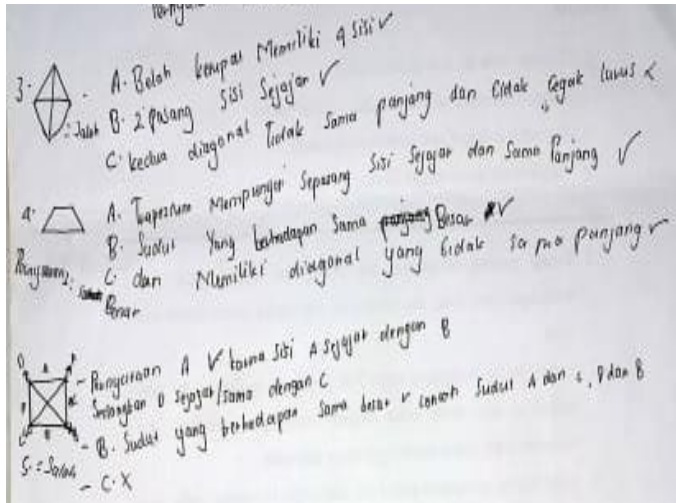 3. A. Belah ketupat Memiliki 4 sisi ✓
= Salah B. 2 pasang sisi Sejajar ✓
C. kedua diagonal Tidak Sama panjang dan tidak tegak lurus x
4. A. Trapesium Mempunyai Sepasang Sisi Sejajar dan Sama Panjang ✓
B. Sudut Yang berhadapan Sama Besar ✓
C. dan Memiliki diagonal yang tidak sama panjang ✓
Benar
- Pernyataan A ✓ karna Sisi A Sejajar dengan B
Sedangkan D sejajar/sama dengan C
- B. Sudut yang berhadapan sama besar ✓ contoh Sudut A dan c, D dan B
5. = Salah
- C. X